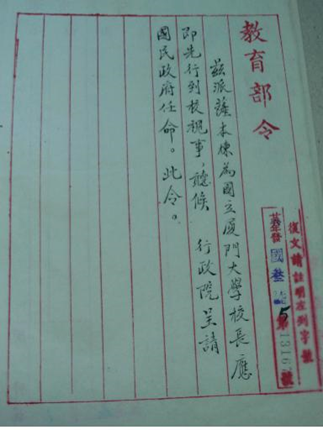 教育部令
復文請註明左列字號
發 國 叁 5 第13167號
茲派薩本棟為國立厦門大學校長應
即先行到校視事，聽候 行政院呈請
國民政府任命。此令。